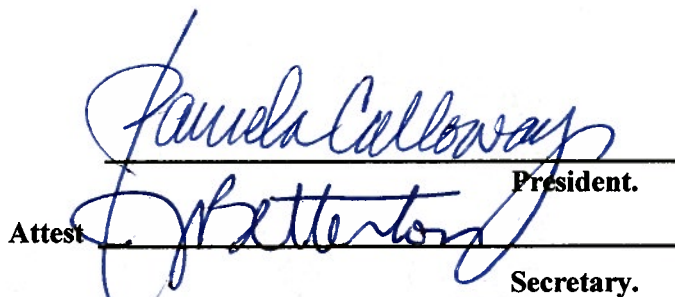 Pamela Calloway
President.
Attest J Betterton
Secretary.